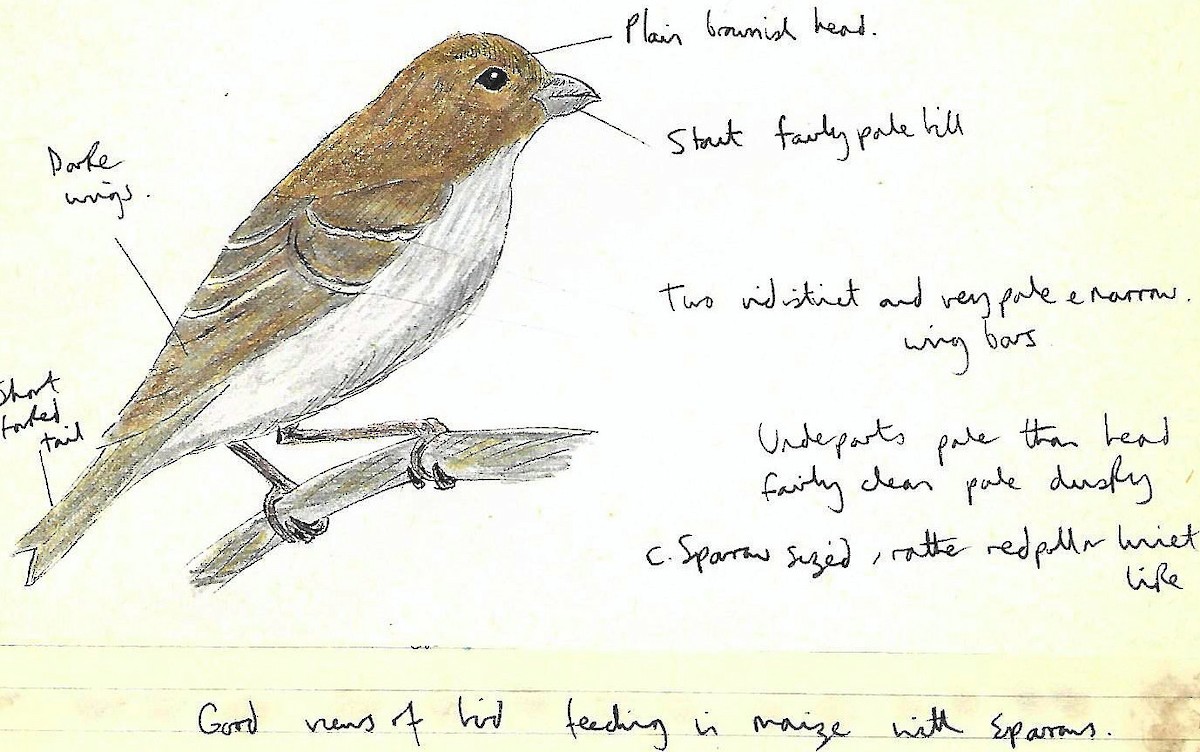 Plain brownish head.
Stout fairly pale bill
Dark
wings.
Two indistinct and very pale & narrow
wing bars
Short
forked
tail
Underparts pale than head
fairly clean pale dusky
c. Sparrow sized, rather redpoll or linnet
like
Good views of bird feeding in maize with Sparrows.